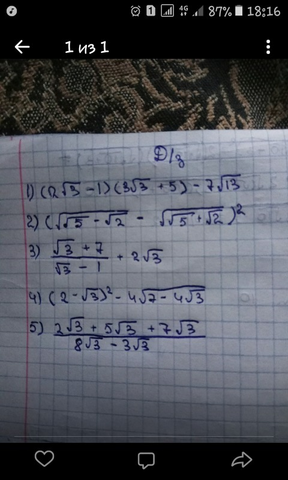 87% 18:16
1 из 1
Д/з
1) (2√3 - 1)(3√3 + 5) - 7√13
2) (√(√5 - √2) - √(√5 + √2))²
3) (√3 + 7)/(√3 - 1) + 2√3
4) (2 - √3)² - 4√(7 - 4√3)
5) (2√3 + 5√3 + 7√3)/(8√3 - 3√3)